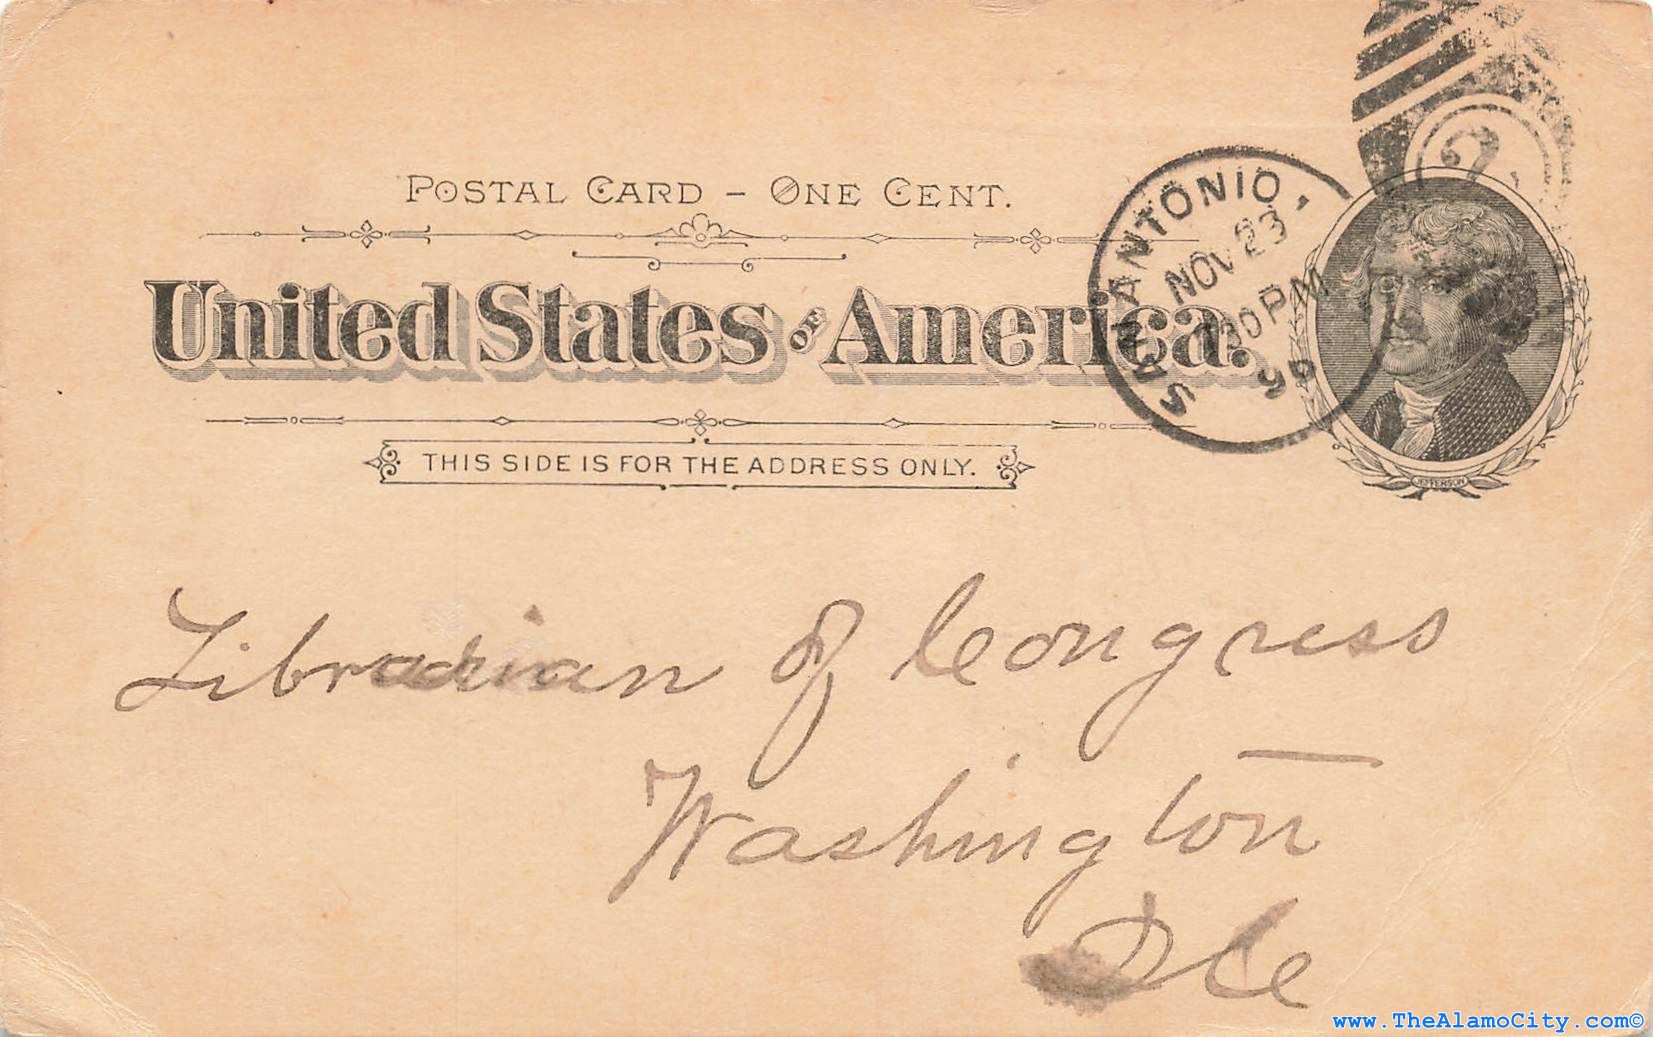 POSTAL CARD - ONE CENT.
United States OF America.
THIS SIDE IS FOR THE ADDRESS ONLY.
SAN ANTONIO,
NOV 23
30 PM
2
JEFFERSON
Librarian of Congress
Washington
DC
www.TheAlamoCity.com©